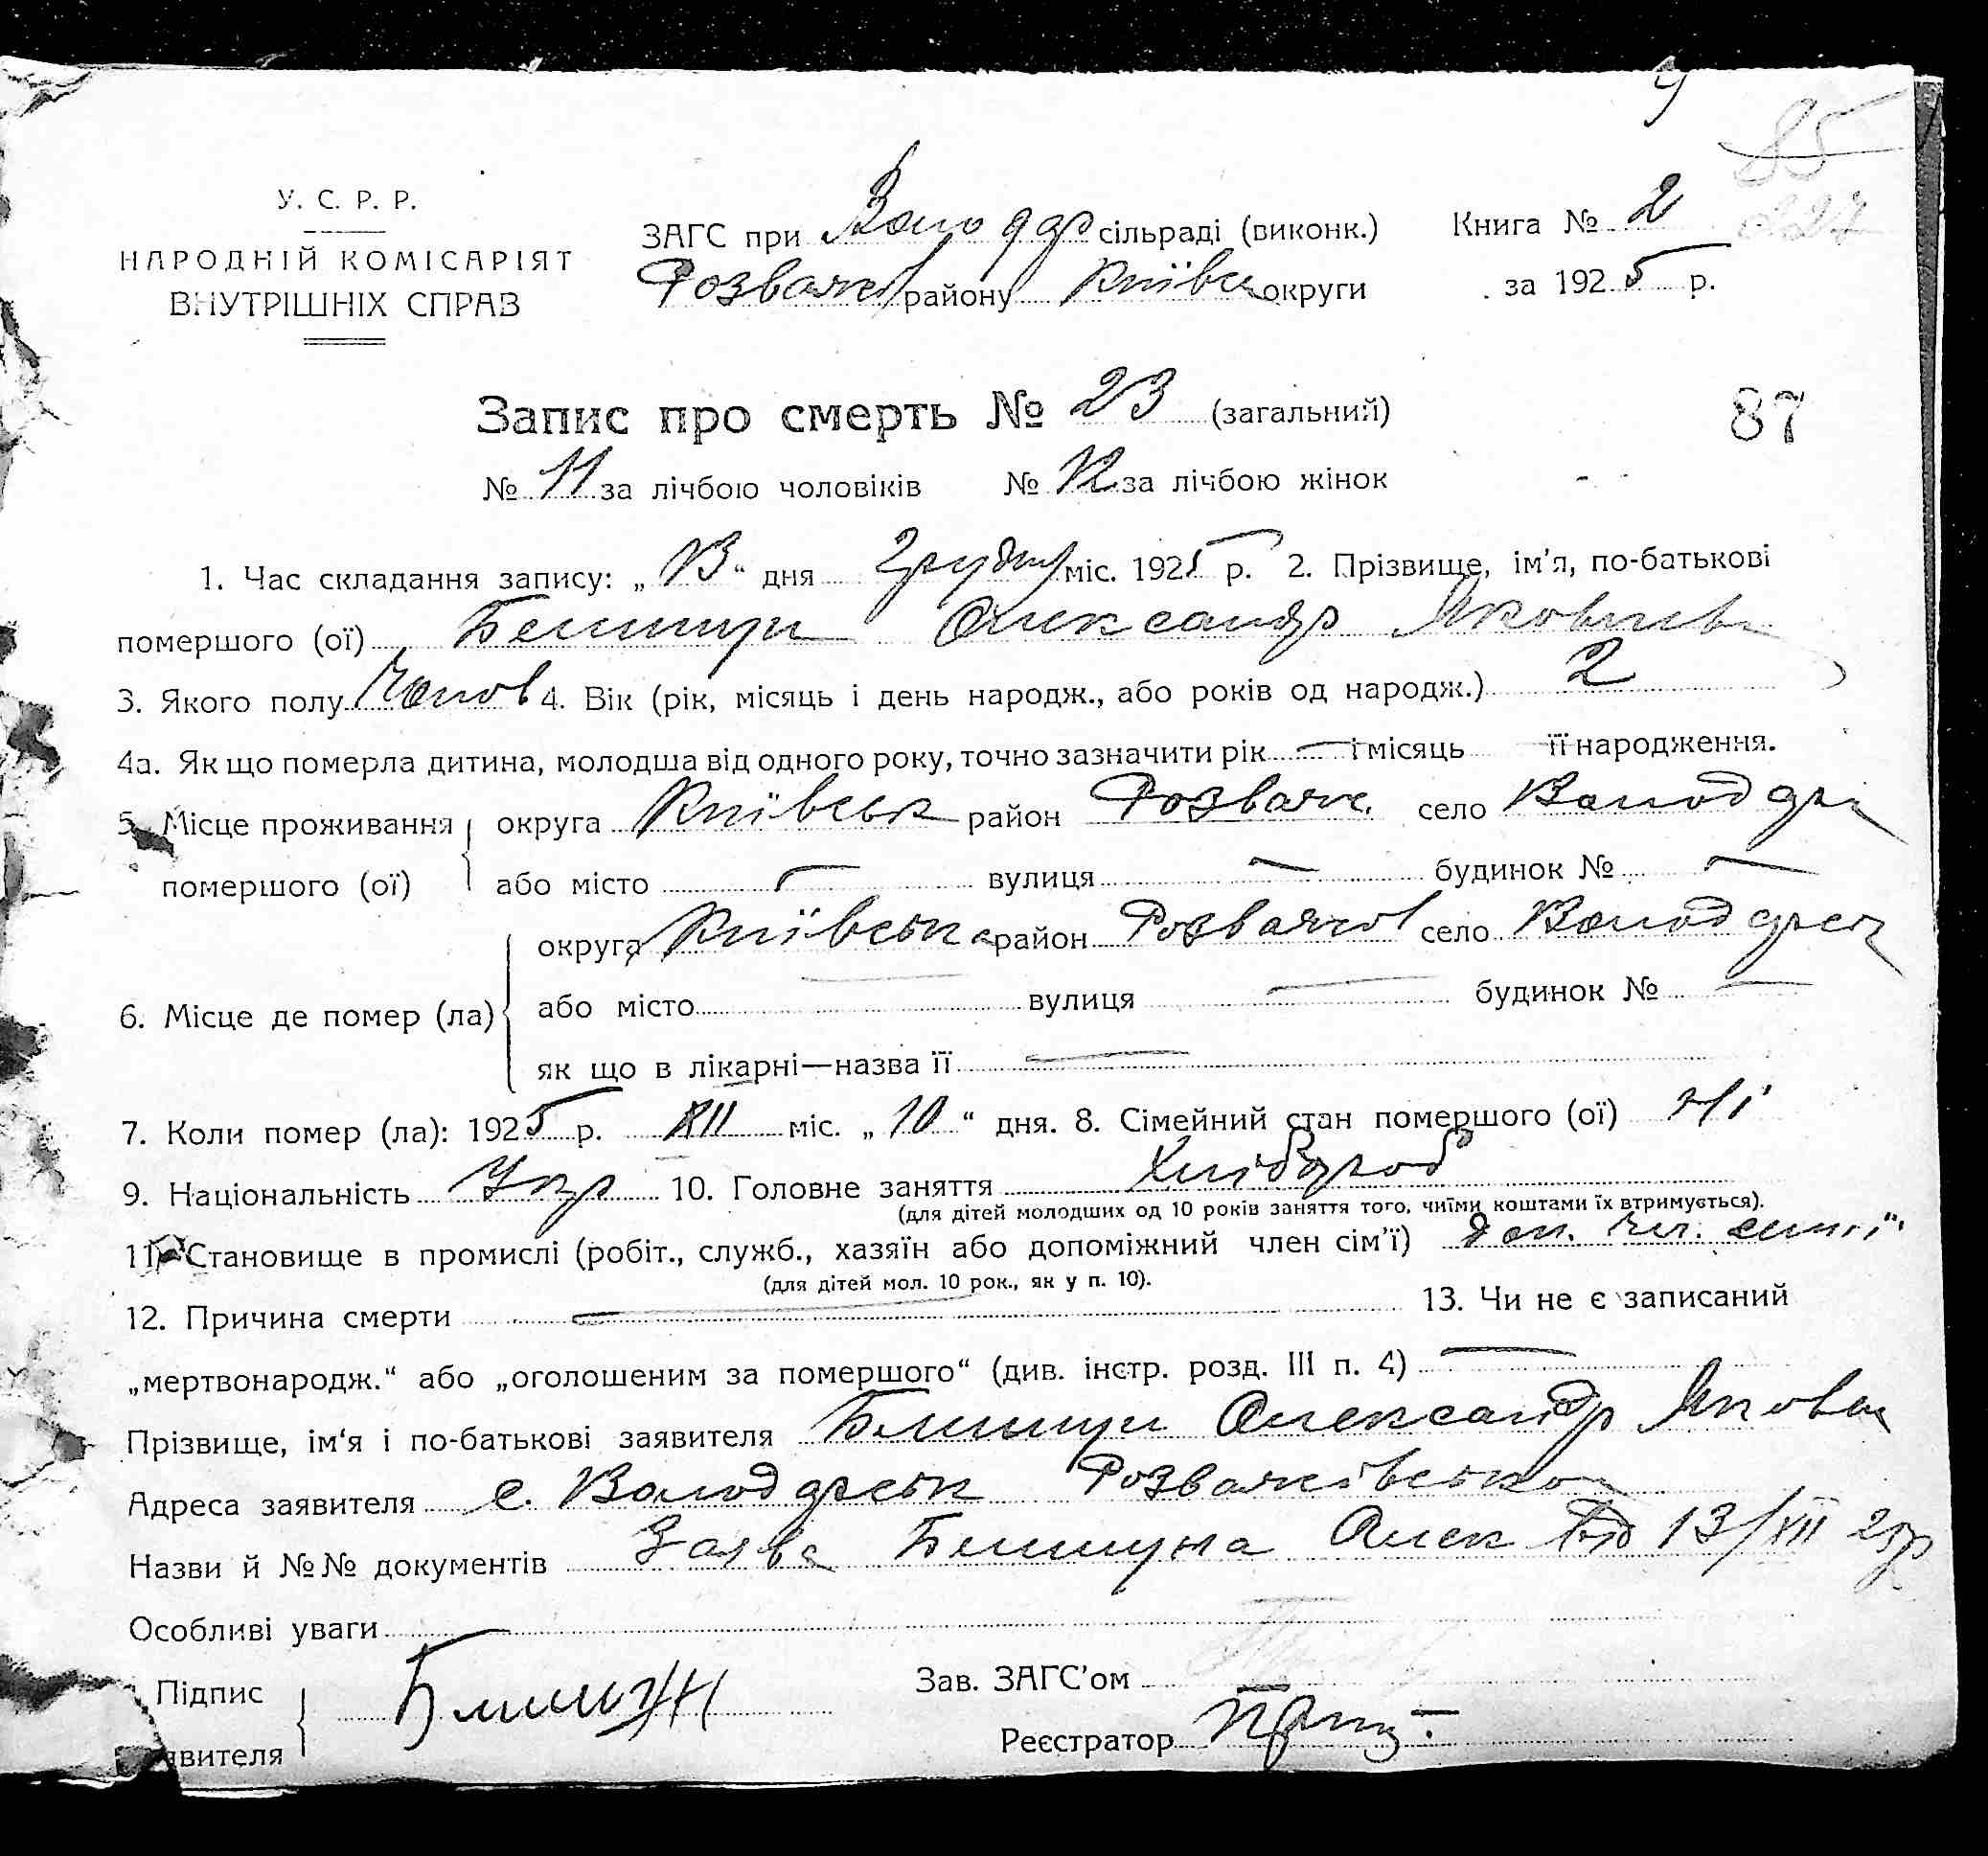 85
227
У. С. Р. Р.
НАРОДНІЙ КОМІСАРІЯТ
ВНУТРІШНІХ СПРАВ
ЗАГС при Володар сільраді (виконк.) Книга № 2
Розважев району Київськ округи за 1925 р.
Запис про смерть № 23 (загальний)
87
№ 11 за лічбою чоловіків № 12 за лічбою жінок
1. Час складання запису: „13“ дня Грудня міс. 1925 р. 2. Прізвище, ім’я, по-батькові
помершого (ої) Олександр Яковлев
3. Якого полу Чолов 4. Вік (рік, місяць і день народж., або років од народж.) 2
4а. Як що померла дитина, молодша від одного року, точно зазначити рік — і місяць її народження.
5. Місце проживання округа Київськ район Розваж. село
помершого (ої) або місто — вулиця — будинок № —
округа Київська район Розважов село
6. Місце де помер (ла) або місто — вулиця — будинок № —
як що в лікарні—назва її —
7. Коли помер (ла): 1925 р. XII міс. „10“ дня. 8. Сімейний стан помершого (ої) Ні
9. Національність Укр 10. Головне заняття Хлібороб
(для дітей молодших од 10 років заняття того, чиїми коштами їх втримується).
11. Становище в промислі (робіт., служб., хазяїн або допоміжний член сім’ї) доп. чл. сімї
(для дітей мол. 10 рок., як у п. 10).
12. Причина смерти — 13. Чи не є записаний
„мертвонародж.“ або „оголошеним за помершого“ (див. інстр. розд. III п. 4) —
Прізвище, ім‘я і по-батькові заявителя Олександр Яковл
Адреса заявителя с. Розважівського
Назви й №№ документів Заява Олек від 13/XII 25р
Особливі уваги —
Підпис
Зав. ЗАГС’ом
явителя
Реєстратор